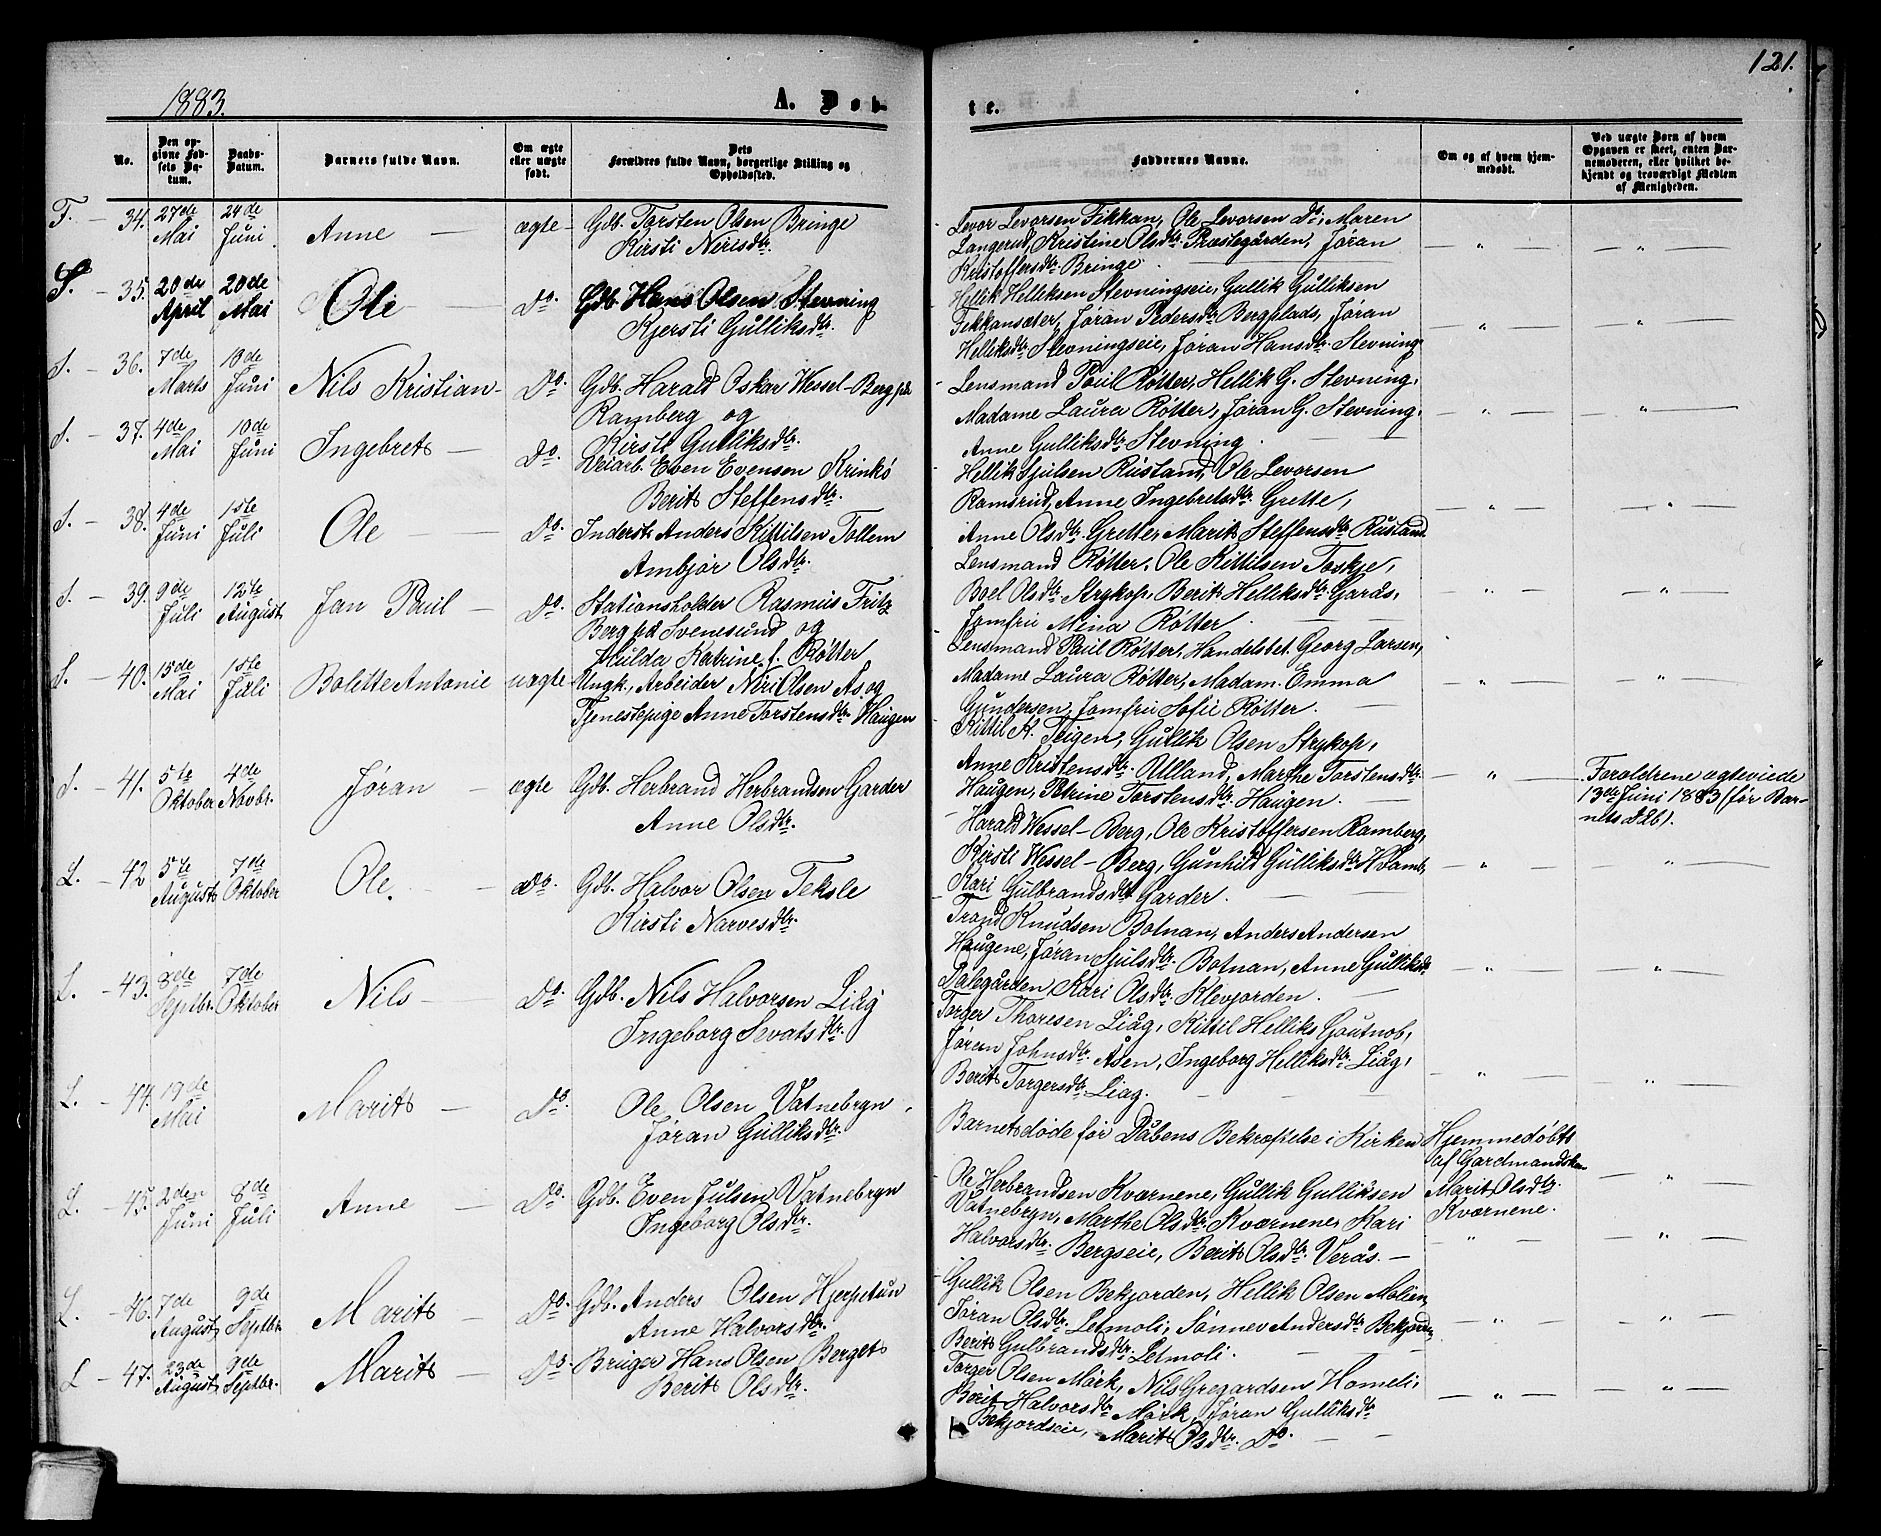 121.
1883.
A. Døb-
te.
No.
Den op-
givne Fød-
sels Da-
tum.
Daabs-
Datum.
Barnets fulde Navn.
Om ægte
eller uægte
født.
Dets
Forældres fulde Navn, borgerlige Stilling og
Opholdssted.
Faddernes Navne.
Om og af hvem hjem-
medøbt.
Ved uægte Børn af hvem
Opgaven er skeet, enten Bar-
nemoderen, eller hvilket be-
kjendt og troværdigt Medlem
af Menigheden.
F. - 34. 27de Mai 24de Juni Anne - ægte - Gdb. Torsten Olsen Bringe
Kirsti Nirisdtr.
Levor Levorsen Fikkan, Ole Levorsen Do, Maren
Langerud, Kristine Olsdtr. Præstegården, Jøran
Kristoffersdtr. Bringe.
S. - 35. 20de April 20de Mai Ole Do. Gdb. Hans Olsen Stevning
Kjersti Gulliksdtr.
Hellik Helliksen Stevningseie, Gullik Gulliksen
Fikkansæter, Jøran Pedersdtr. Bergplads, Jøran
Helliksdtr. Stevningseie, Jøran Hansdtr. Stevning
S. - 36. 7de Marts 10de Juni Nils Kristian - Do. Gdb. Harald Oskar Wessel-Berg pda
Ramberg og
Kirsti Gulliksdtr.
Lensmand Paul Røtter, Hellik G. Stevning,
Madame Laura Røtter, Jøran G. Stevning,
Anne Gulliksdtr. Stevning.
S. - 37. 4de Mai 10de Juni Ingebret - Do. Veiarb. Even Evensen Krinkö
Berit Steffensdtr.
Hellik Sjulsen Rustand, Ole Levorsen
Ramsrud, Anne Ingebretsdtr. Grette,
Anne Olsdtr. Grette, Marit Steffensdtr. Rustand
S. - 38. 4de Juni 1ste Juli Ole - Do. Inderst Anders Kittilsen Tollem
Ambjør Olsdtr.
Lensmand Røtter, Ole Kittilsen Foskje,
Boel Olsdtr. Strykop, Berit Helliksdtr. Garås,
Jomfru Mina Røtter.
S. - 39. 9de Juli 12te August Jan Paul - Do. Stationsholder Rasmus Fritz
Berg pd Svenesund og
Hulda Katrine f. Røtter
Lensmand Paul Røtter, Handelsbet. Georg Larsen,
Madame Laura Røtter, Madam. Emma
Gundersen, Jomfru Sofie Røtter.
S. - 40. 15de Mai 1ste Juli Bolette Antonie uægte Ungk., Arbeider Niri Olsen As og
Tjenestepige Anne Torstensdtr. Haugen
Kittil K. Teigen, Gullik Olsen Strykop,
Anne Kristensdtr. Ulland, Marthe Torstensdtr.
Haugen, Petrine Torstensdtr. Haugen.
Forældrene ægteviede
13de Juni 1883 (før Bar-
nets Dåb).
S. - 41. 5te Oktober 4de Novbr. Jøran - ægte Gdb. Herbrand Herbrandsen Garder
Anne Olsdtr.
Harald Wessel-Berg, Ole Kristoffersen Ramberg,
Kirsti Wessel-Berg, Gunhild Gulliksdtr. Hvamb,
Kari Gulbrandsdtr. Garder.
L. - 42 5te August 7de Oktober Ole. - Do. Gdb. Halvor Olsen Teksle
Kirsti Narvesdtr.
Trond Knudsen Botnan, Anders Andersen
Haugene, Jøran Sjulsdtr. Botnan, Anne Gulliksdtr
Dalegården, Kari Olsdtr. Klevjorden.
L. - 43. 8de Septbr. 7de Oktober Nils - Do. Gdb. Nils Halvorsen Liåg
Ingeborg Sevatsdtr.
Torger Thoresen Liåg, Kittil Helliks. Goutnob,
Jøran Johnsdtr. Åsen, Ingeborg Helliksdtr. Liåg,
Berit Torgersdtr. Liag.
L. - 44. 19de Mai Marit - Do. Ole Olsen Vatnebryn,
Jøran Gulliksdtr.
Barnet døde før Dåbens Bekræftelse i Kirken
Hjemmedøbt
af Gardmandskon
Marit Olsdtr.
Kværnene.
L. - 45. 2den Juni 8de Juli Anne - Do. Gdb. Even Julsen Vatnebryn
Ingeborg Olsdtr.
Ole Herbrandsen Kværnene, Gullik Gulliksen
Vatnebryn, Marthe Olsdtr. Kværnene, Kari
Halvorsdtr. Bergseie, Berit Olsdtr. Verås. -
L. - 46. 7de August 9de Septbr. Marit - Do. Gdb. Anders Olsen Hjerpetun
Anne Halvorsdtr.
Gullik Olsen Bekjorden, Hellik Olsen Moien,
Jøran Olsdtr. Letmoli, Sønnev Andersdtr. Bekjorden
Berit Gulbrandsdtr. Letmoli.
L - 47. 23de August 9de Septbr. Marit - Do. Bruger Hans Olsen Berget
Berit Olsdtr.
Torger Olsen Mårk, Nils Gregardsen Homeli,
Berit Halvorsdtr. Mårk, Jøran Gulliksdtr
Bekjordseie, Marit Olsdtr. Do. -